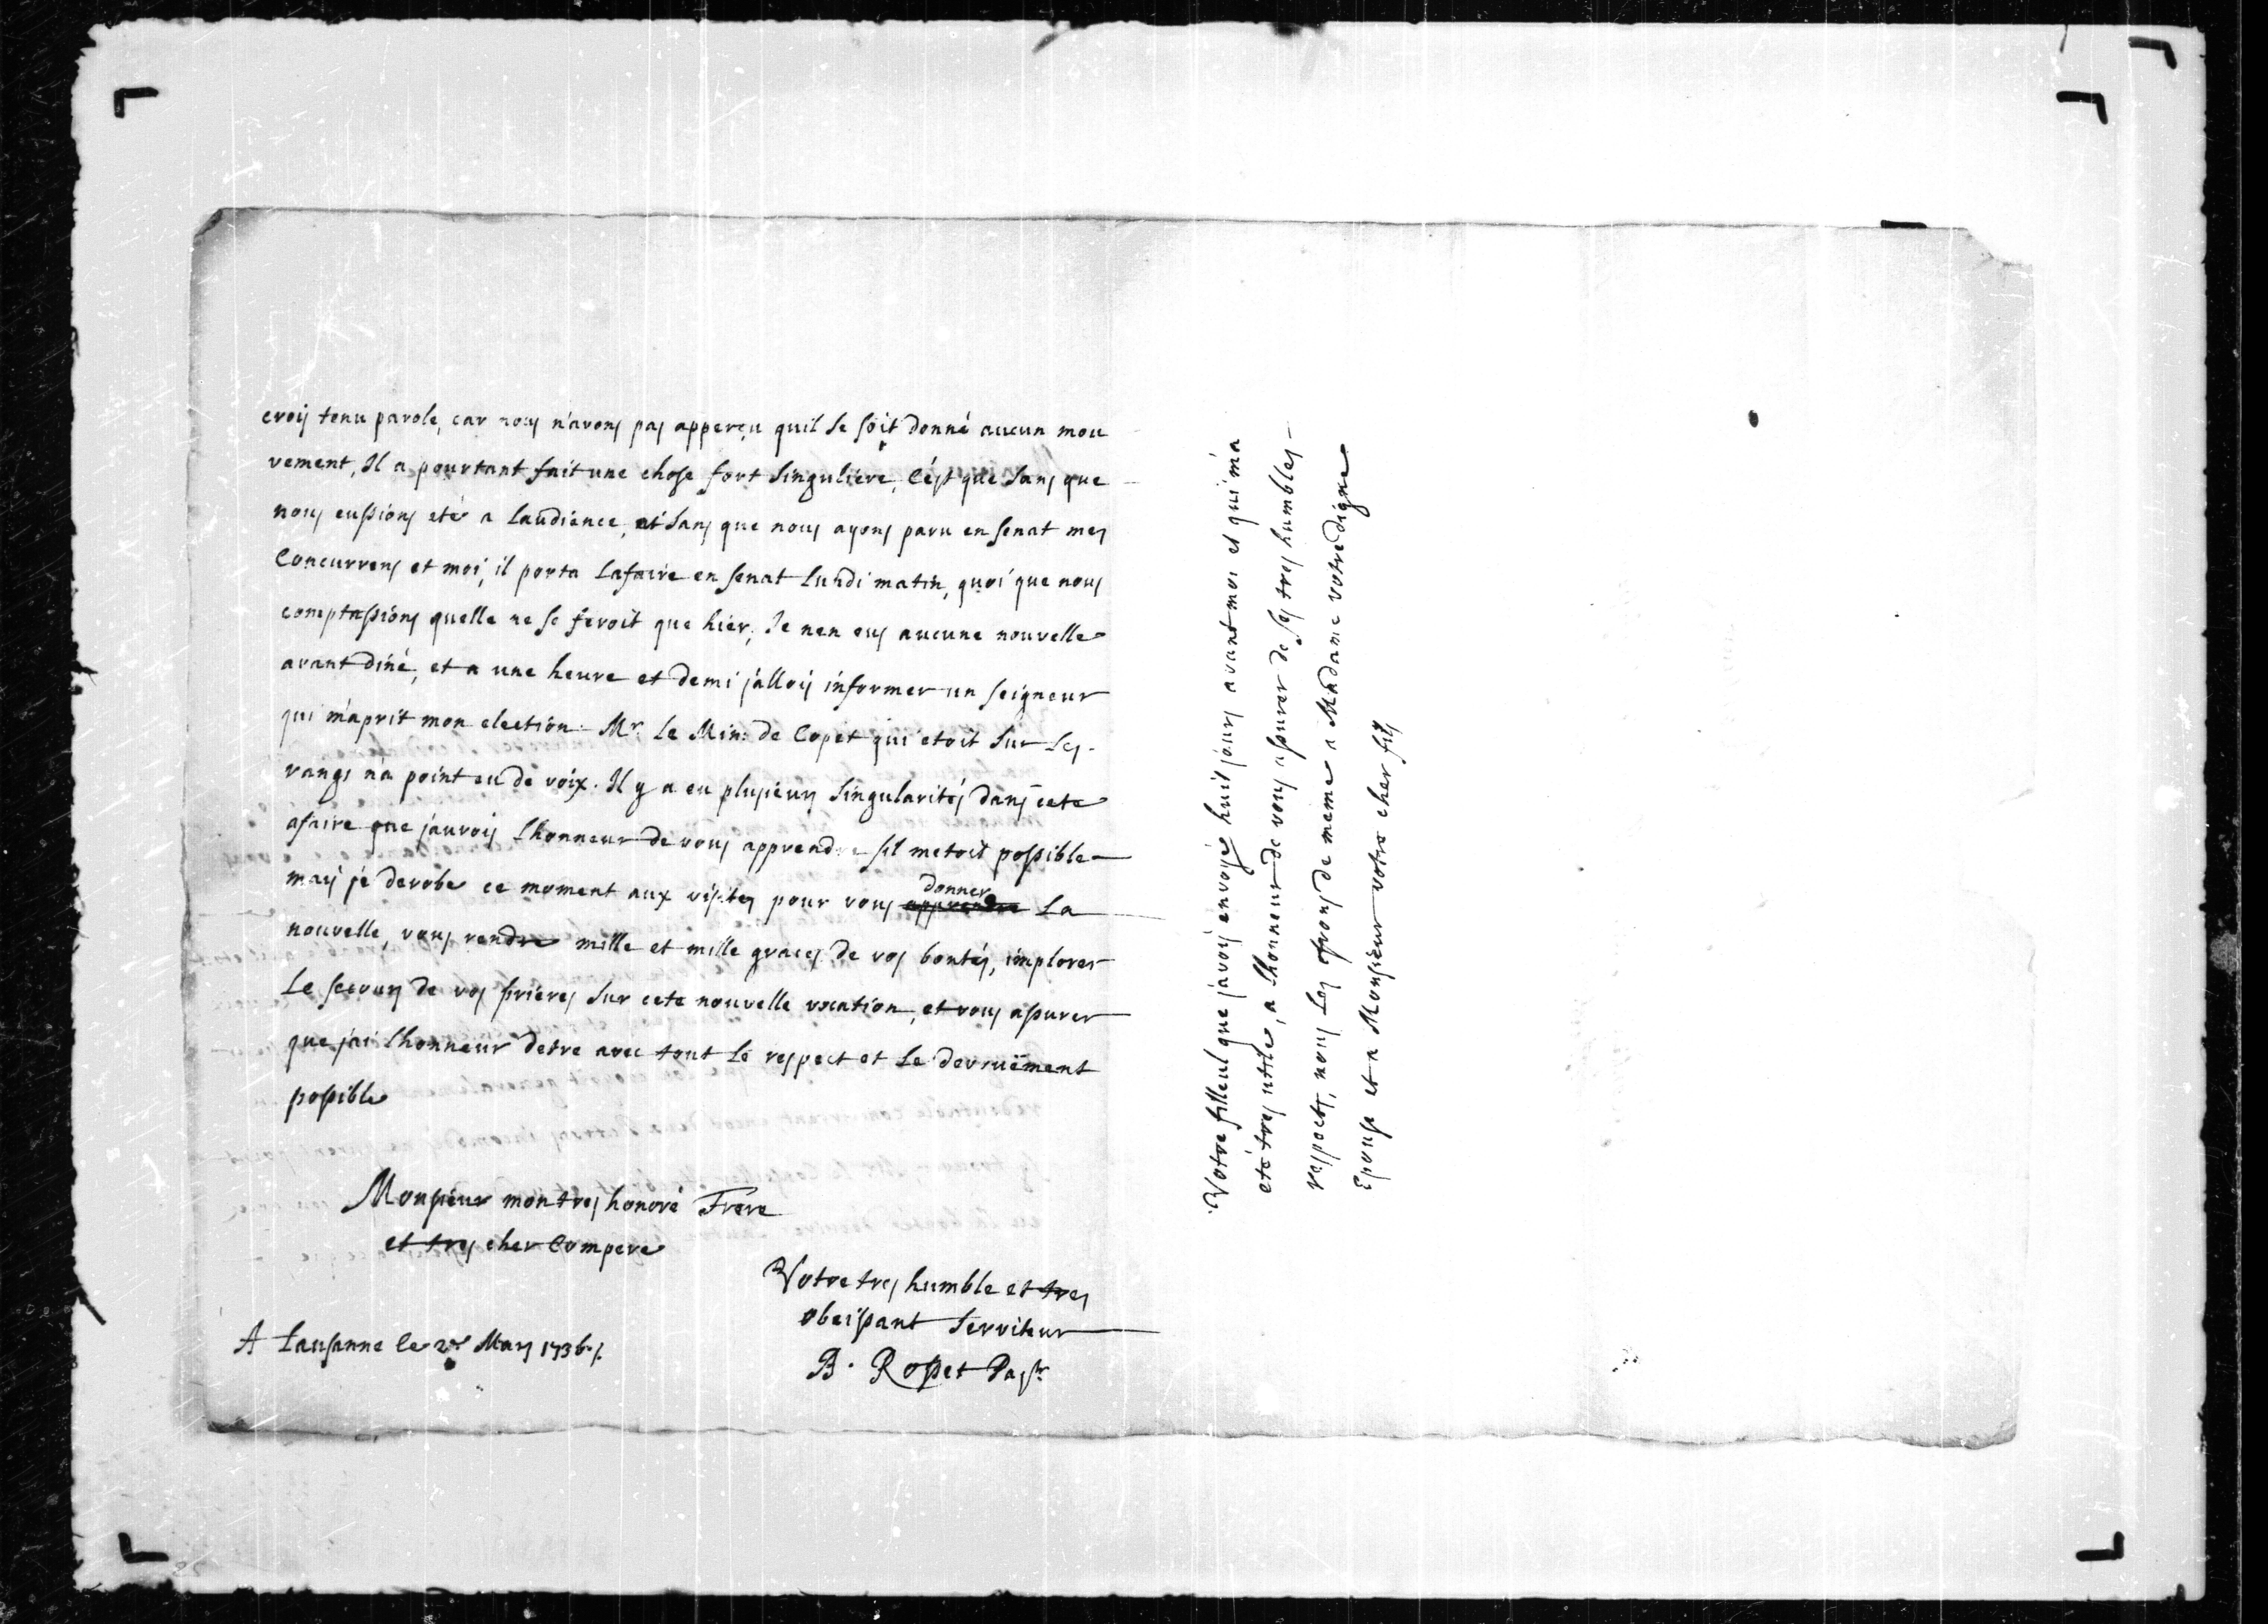 crois tenu parole, car nous n'avons pas apperçu quil se soit donné aucun mou
vement, Il a pourtant fait une chose fort singuliere, C'est que sans que
nous eussions eté a laudience, et sans que nous ayons paru en senat mes
Concurrens et moi, il porta lafaire en senat lundi matin, quoi que nous
comptassions quelle ne se feroit que hier, Je nen eus aucune nouvelle
avant diné, et a une heure et demi j'allois informer un seigneur
qui m'aprit mon election. Mr. le Min: de Copet qui etoit sur les
rangs n'a point eu de voix. Il y a eu plusieurs singularités dans cete
afaire que j'aurois lhonneur de vous apprendre sil metoit possible
mais je derobe ce moment aux visites pour vous apprendre donner la
nouvelle, vous rendre mille et mille graces de vos bontés, implorer
le secours de vos prieres sur cete nouvelle vocation, et vous assurer
que jai lhonneur detre avec tout le respect et le devouëment
possible
Monsieur mon tres honoré Frere
et tres cher Compere
Votre tres humble et tres
obeissant serviteur
B. Rosset Pastr
A Lausanne le 2e Mars 1736.
Votre filleul que j'avois envoyé huit jours avant moi et qui m'a
eté tres utile, a lhonneur de vous assurer de ses tres humbles
respects, nous les ofrons de meme a Madame votre digne
Epouse et a Monsieur votre cher fils